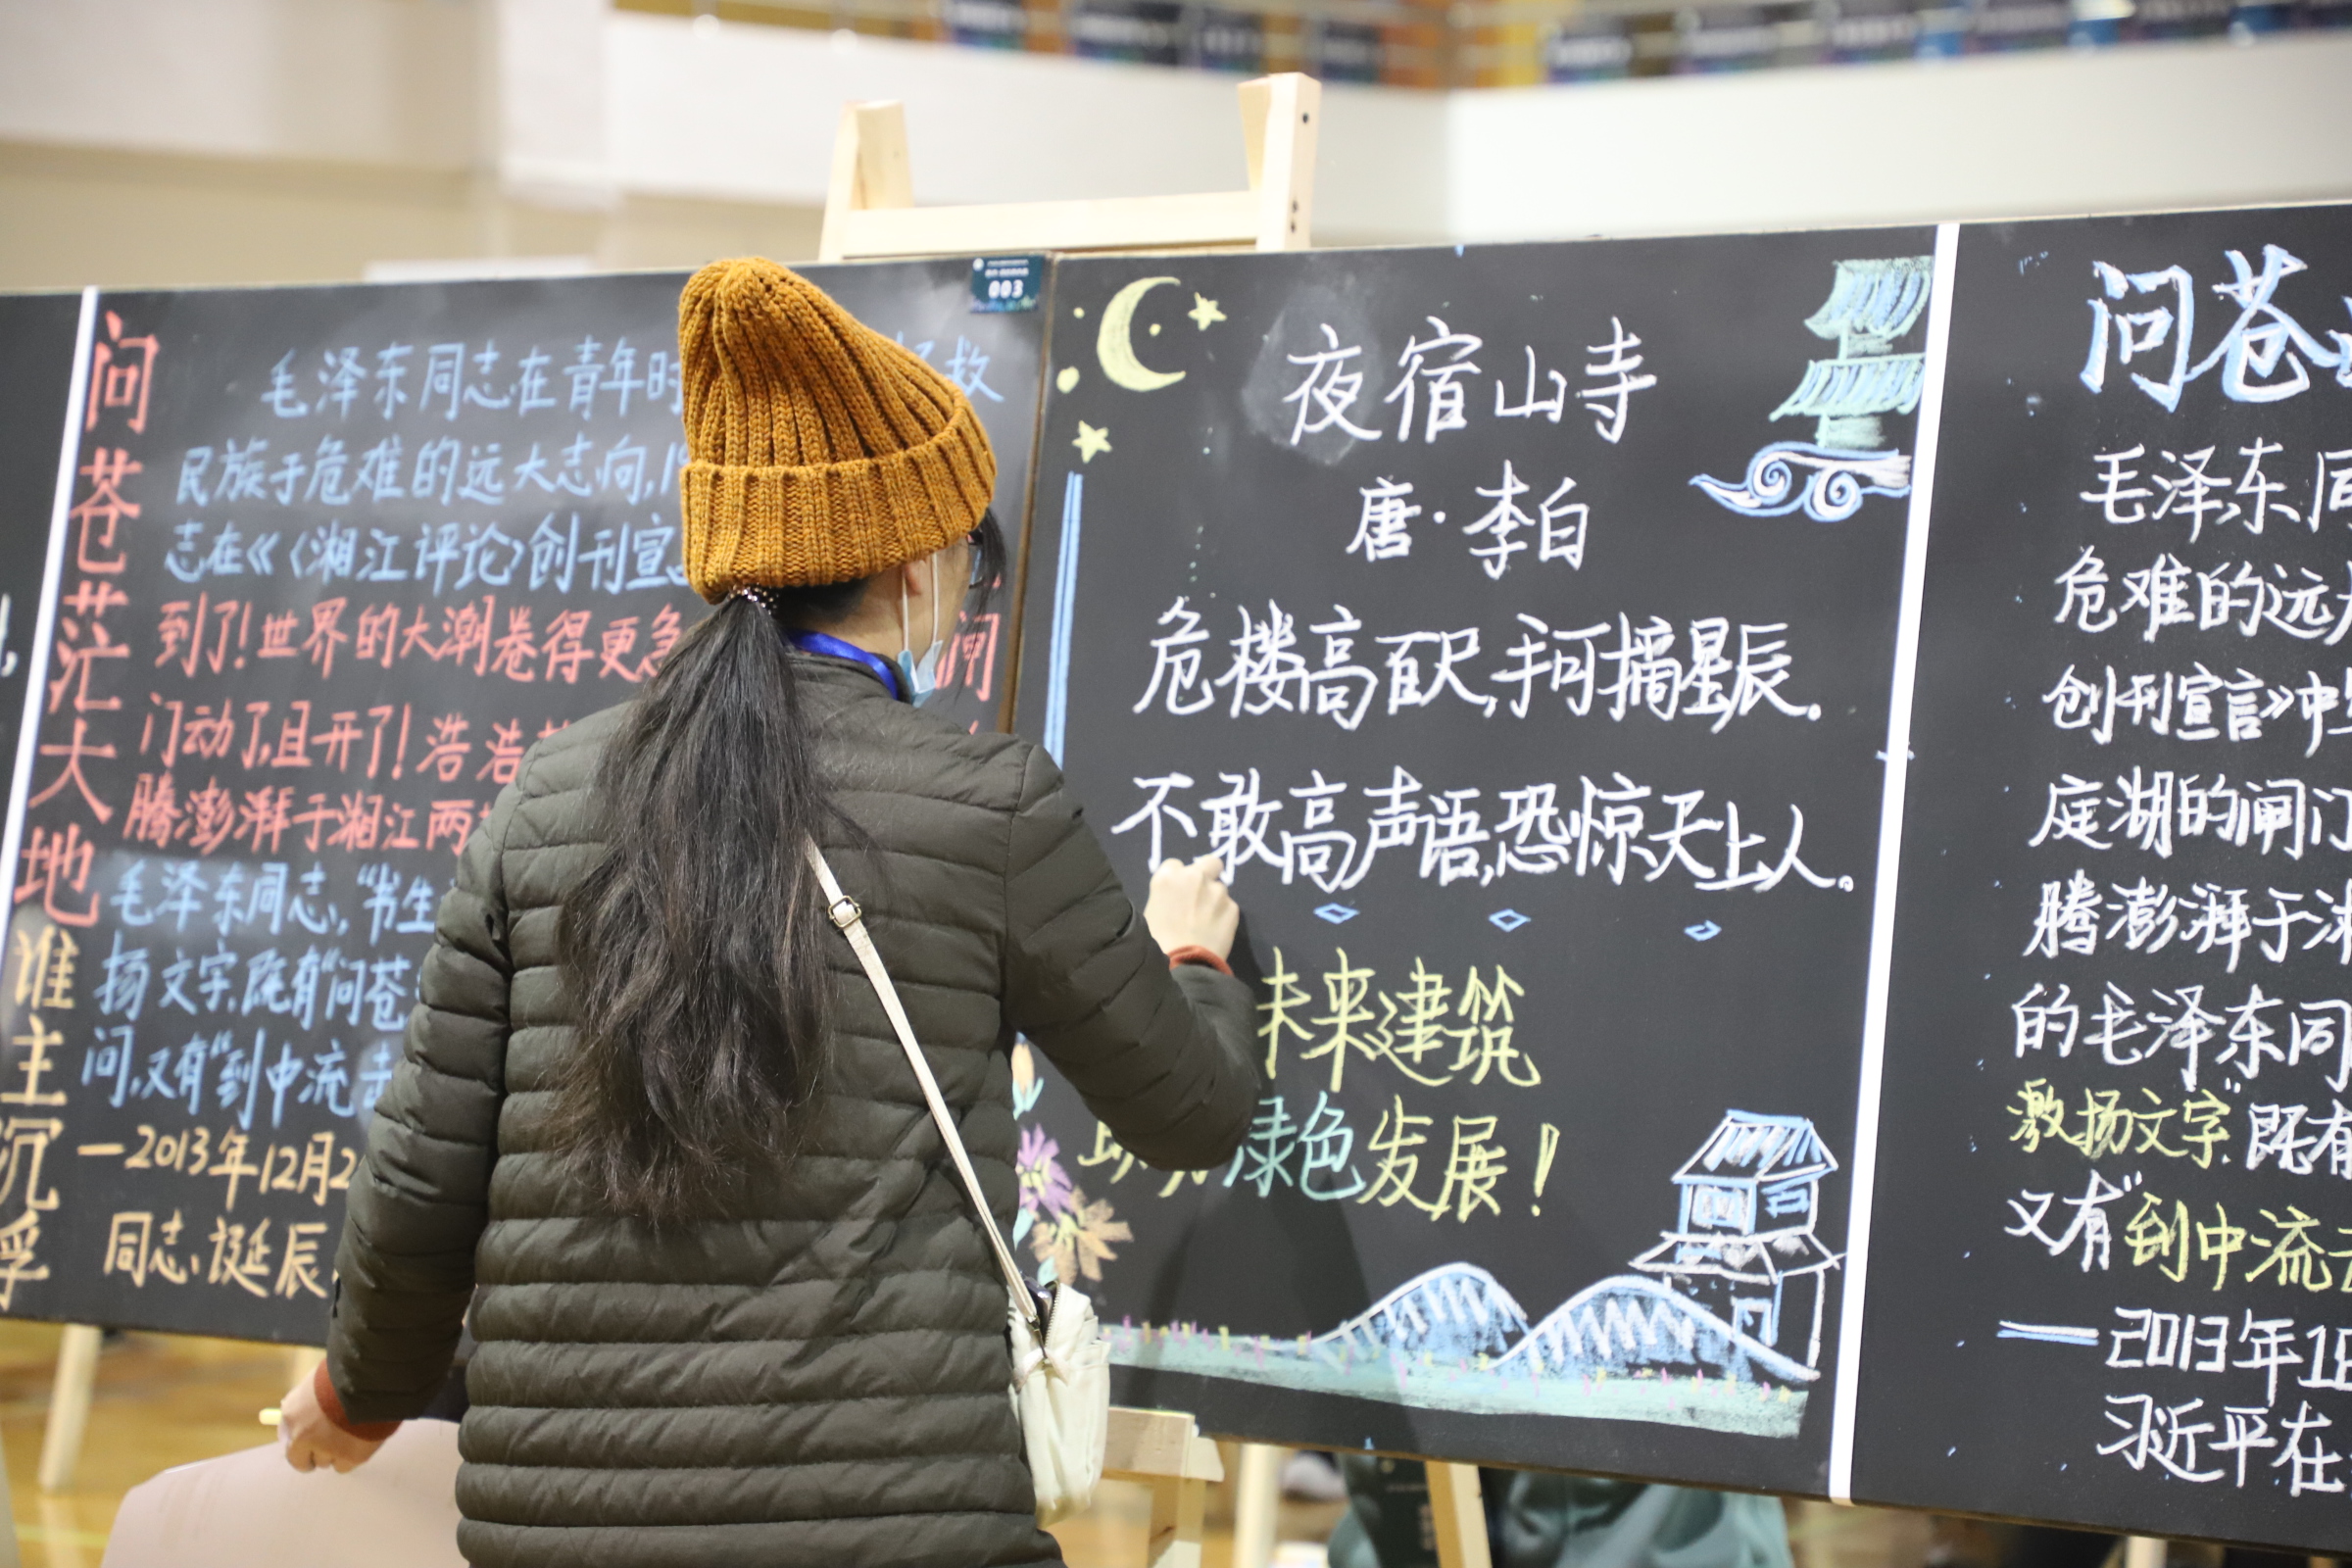 问苍茫大地
谁主沉浮
毛泽东同志在青年时 拯救
民族于危难的远大志向,1
志在《〈湘江评论〉创刊宣
到了!世界的大潮卷得更急 闸
门动了,且开了!浩浩
腾澎湃于湘江两
毛泽东同志,“书生
扬文字,既有“问苍
问,又有“到中流击
—2013年12月2
同志诞辰
003
夜宿山寺
唐·李白
危楼高百尺,手可摘星辰。
不敢高声语,恐惊天上人。
未来建筑
绿色发展!
问苍
毛泽东同
危难的远大
创刊宣言》中
庭湖的闸门
腾澎湃于
的毛泽东同
激扬文字”既有
又有“到中流击
——2013年12
习近平在